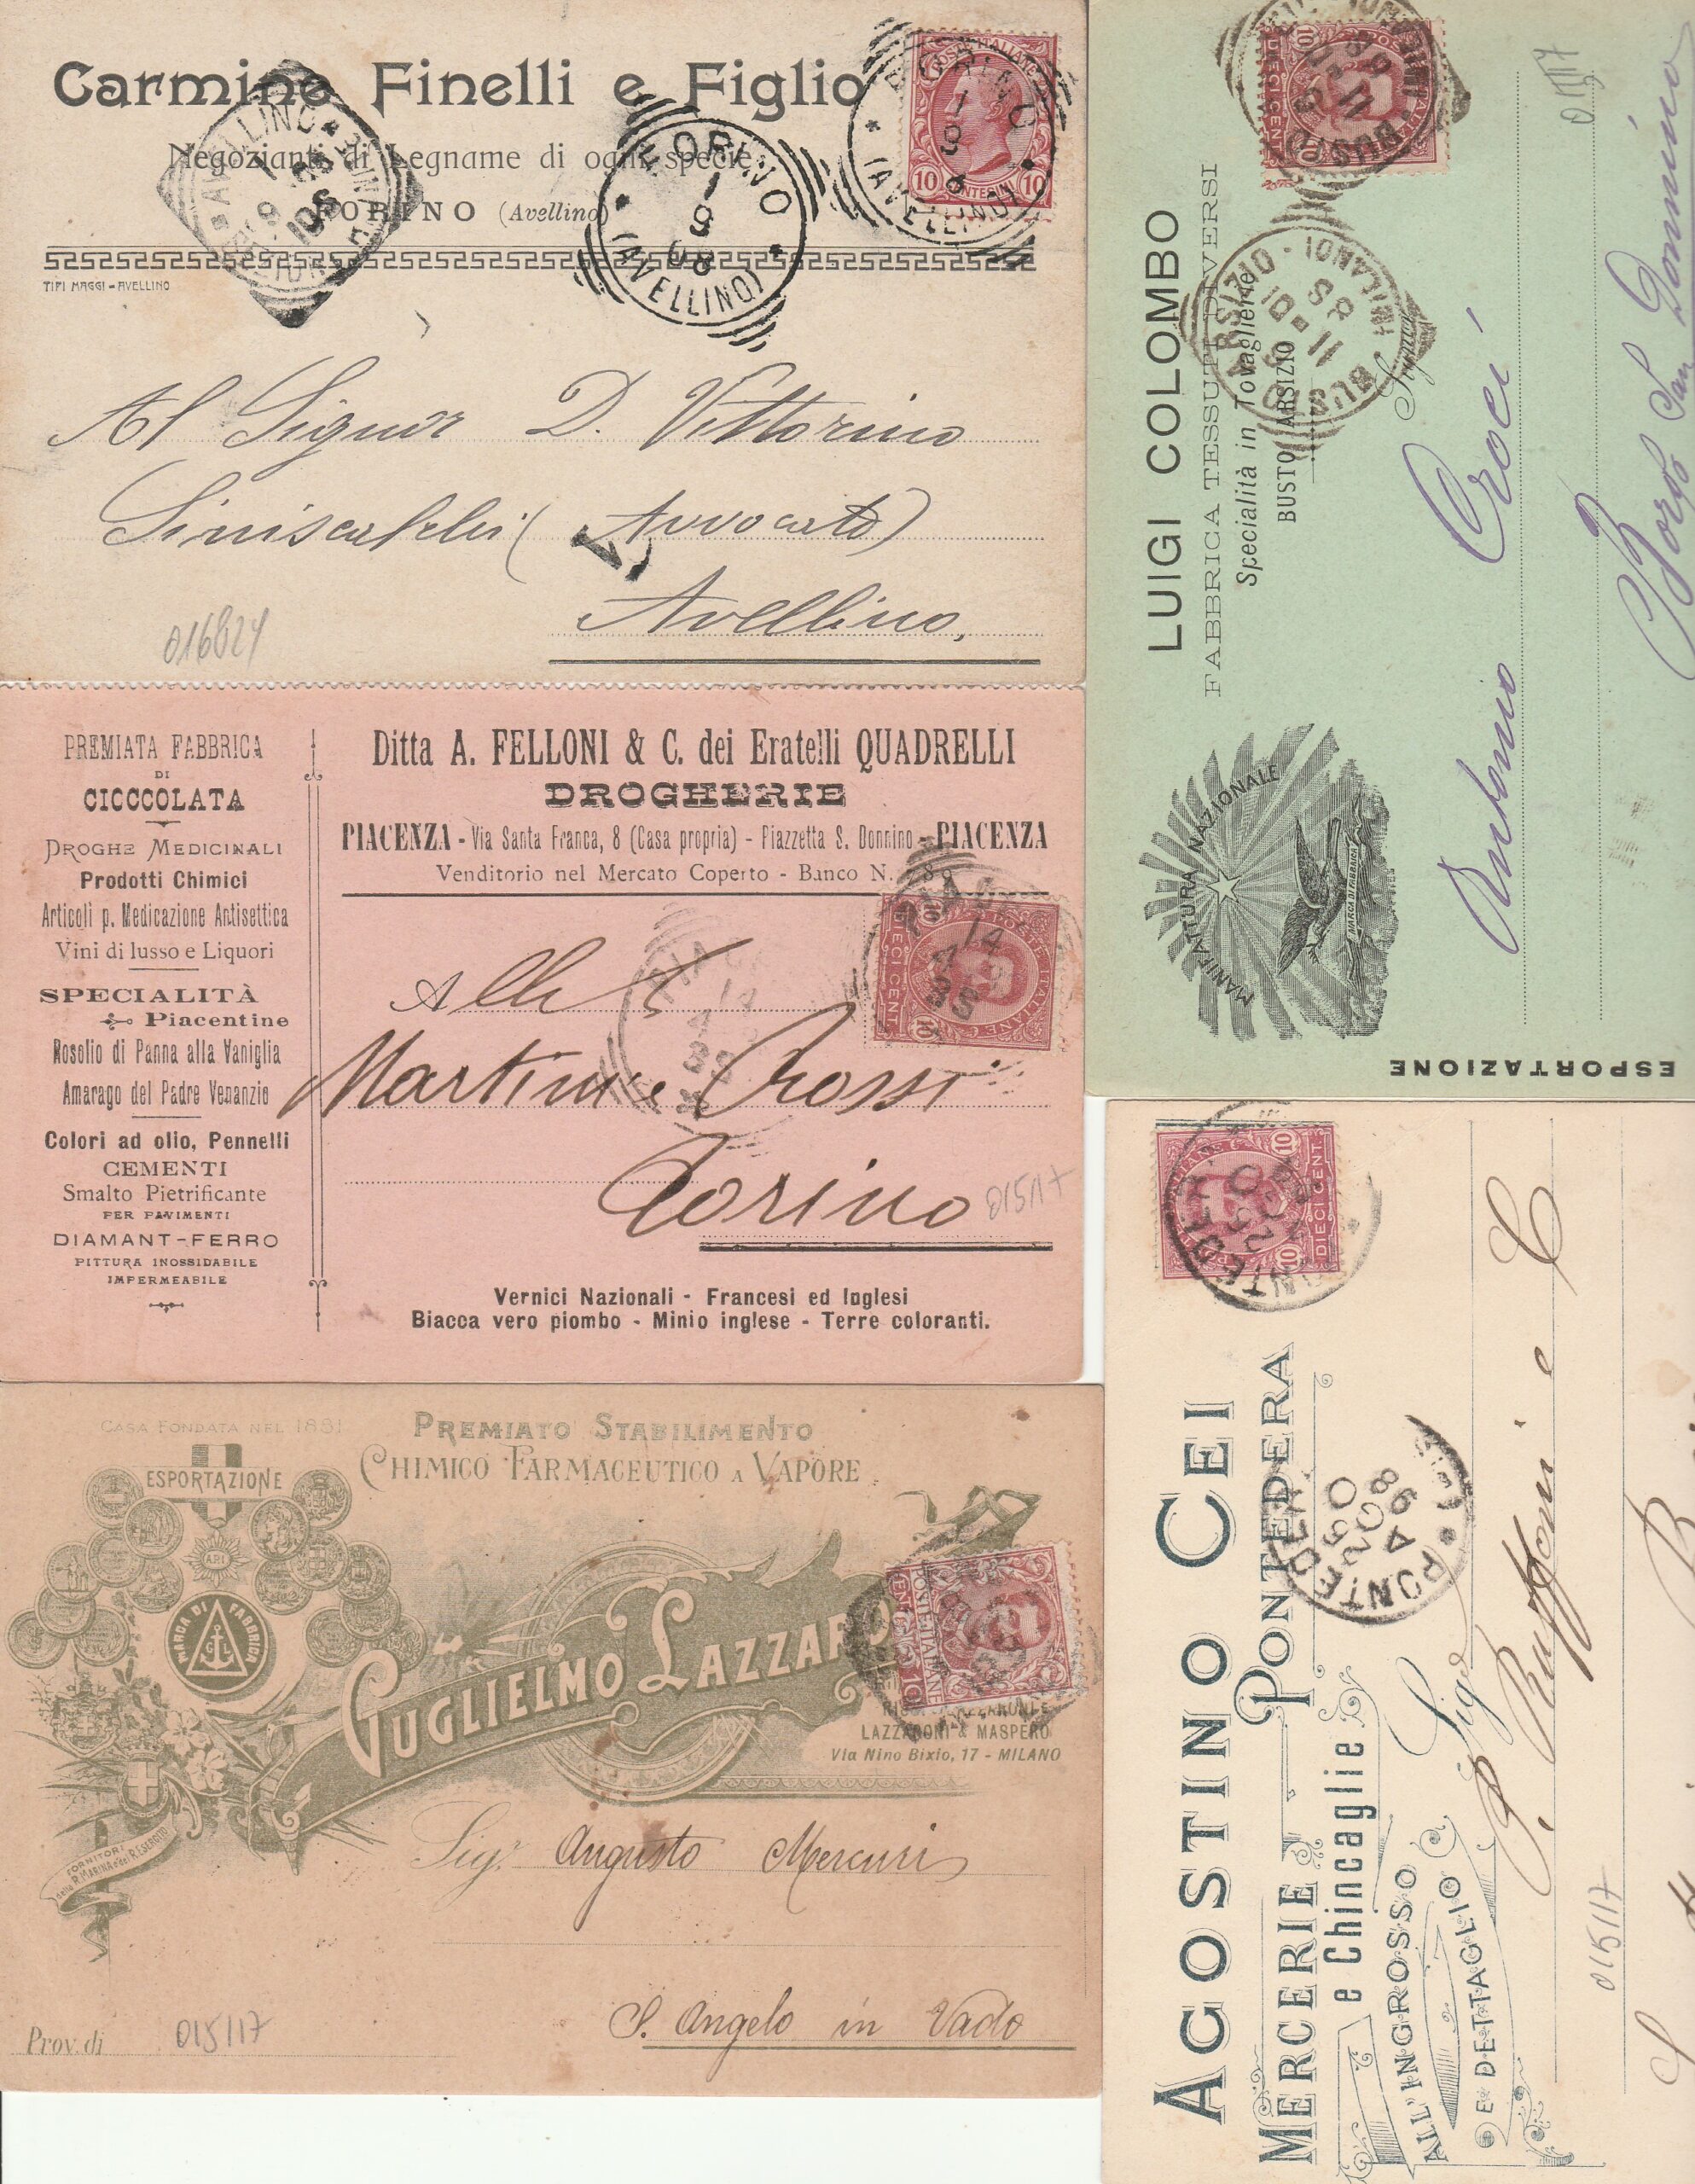 Carmine Finelli e Figlio
Negozianti di Legname di ogni specie
FORINO (Avellino)
TIPI MAGGI - AVELLINO
FORINO
1
9
08
(AVELLINO)
POSTE ITALIANE
10 CENTESIMI 10
Al Signor D. Vittorino
Siniscalchi (Avvocato)
Avellino,
016824
PREMIATA FABBRICA
DI
CIOCCOLATA
DROGHE MEDICINALI
Prodotti Chimici
Articoli p. Medicazione Antisettica
Vini di lusso e Liquori
SPECIALITÀ
Piacentine
Rosolio di Panna alla Vaniglia
Amarago del Padre Venanzio
Colori ad olio, Pennelli
CEMENTI
Smalto Pietrificante
PER PAVIMENTI
DIAMANT-FERRO
PITTURA INOSSIDABILE
IMPERMEABILE
Ditta A. FELLONI & C. dei Fratelli QUADRELLI
DROGHERIE
PIACENZA - Via Santa Franca, 8 (Casa propria) - Piazzetta S. Donnino - PIACENZA
Venditorio nel Mercato Coperto - Banco N.
Alla
Martini e Rossi
Torino
015117
Vernici Nazionali - Francesi ed Inglesi
Biacca vero piombo - Minio inglese - Terre coloranti.
CASA FONDATA NEL 1881
ESPORTAZIONE
A.P.I.
MARCA DI FABBRICA
G L
FORNITORI
della R. MARINA e del R. ESERCITO
PREMIATO STABILIMENTO
CHIMICO FARMACEUTICO A VAPORE
GUGLIELMO LAZZARO
LAZZARONI & MASPERO
Via Nino Bixio, 17 - MILANO
Sig. Augusto Mercuri
S. Angelo in Vado
Prov. di
015117
LUIGI COLOMBO
FABBRICA TESSUTI DIVERSI
Specialità in Tovaglierie
BUSTO ARSIZIO
BUSTO ARSIZIO (MILANO)
MANIFATTURA NAZIONALE
MARCA DI FABBRICA
ESPORTAZIONE
Signor
Antonio Croci
Borgo San Donnino
015117
AGOSTINO CEI
PONTEDERA
MERCERIE
e Chincaglie
ALL'INGROSSO
E DETTAGLIO
DIECI CENT.
PONTEDERA
Sigr
P. Ruffoni e C
015117